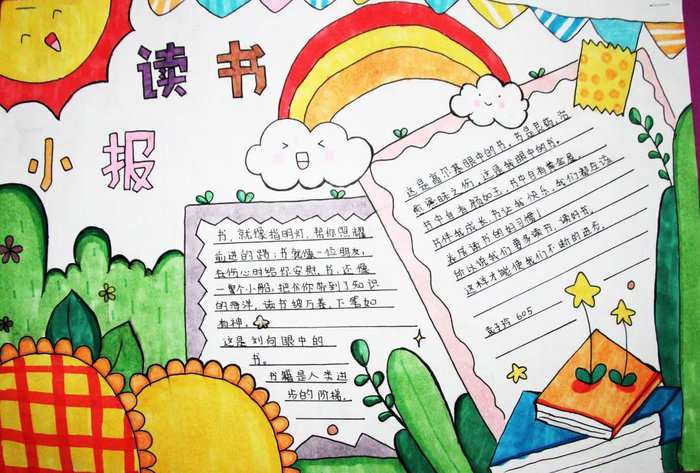 读书
小报
书，就像指明灯，帮你照耀
前进的路；书就像一位朋友，
在伤心时给你安慰，书，还像
一艘小船，把你带到了知识
的海洋。读书破万卷，下笔如
有神。
这是刘向眼中的
书。
书籍是人类进
步的阶梯。
这是高尔基眼中的书。书是良药，治
愚昧之伤。这是我眼中的书。
书中自有颜如玉，书中自有黄金屋。
书伴我成长，书让我快乐，我们都应该
养成读书的好习惯！
所以说我们要多读书，读好书。
这样才能使我们不断的进步。
605